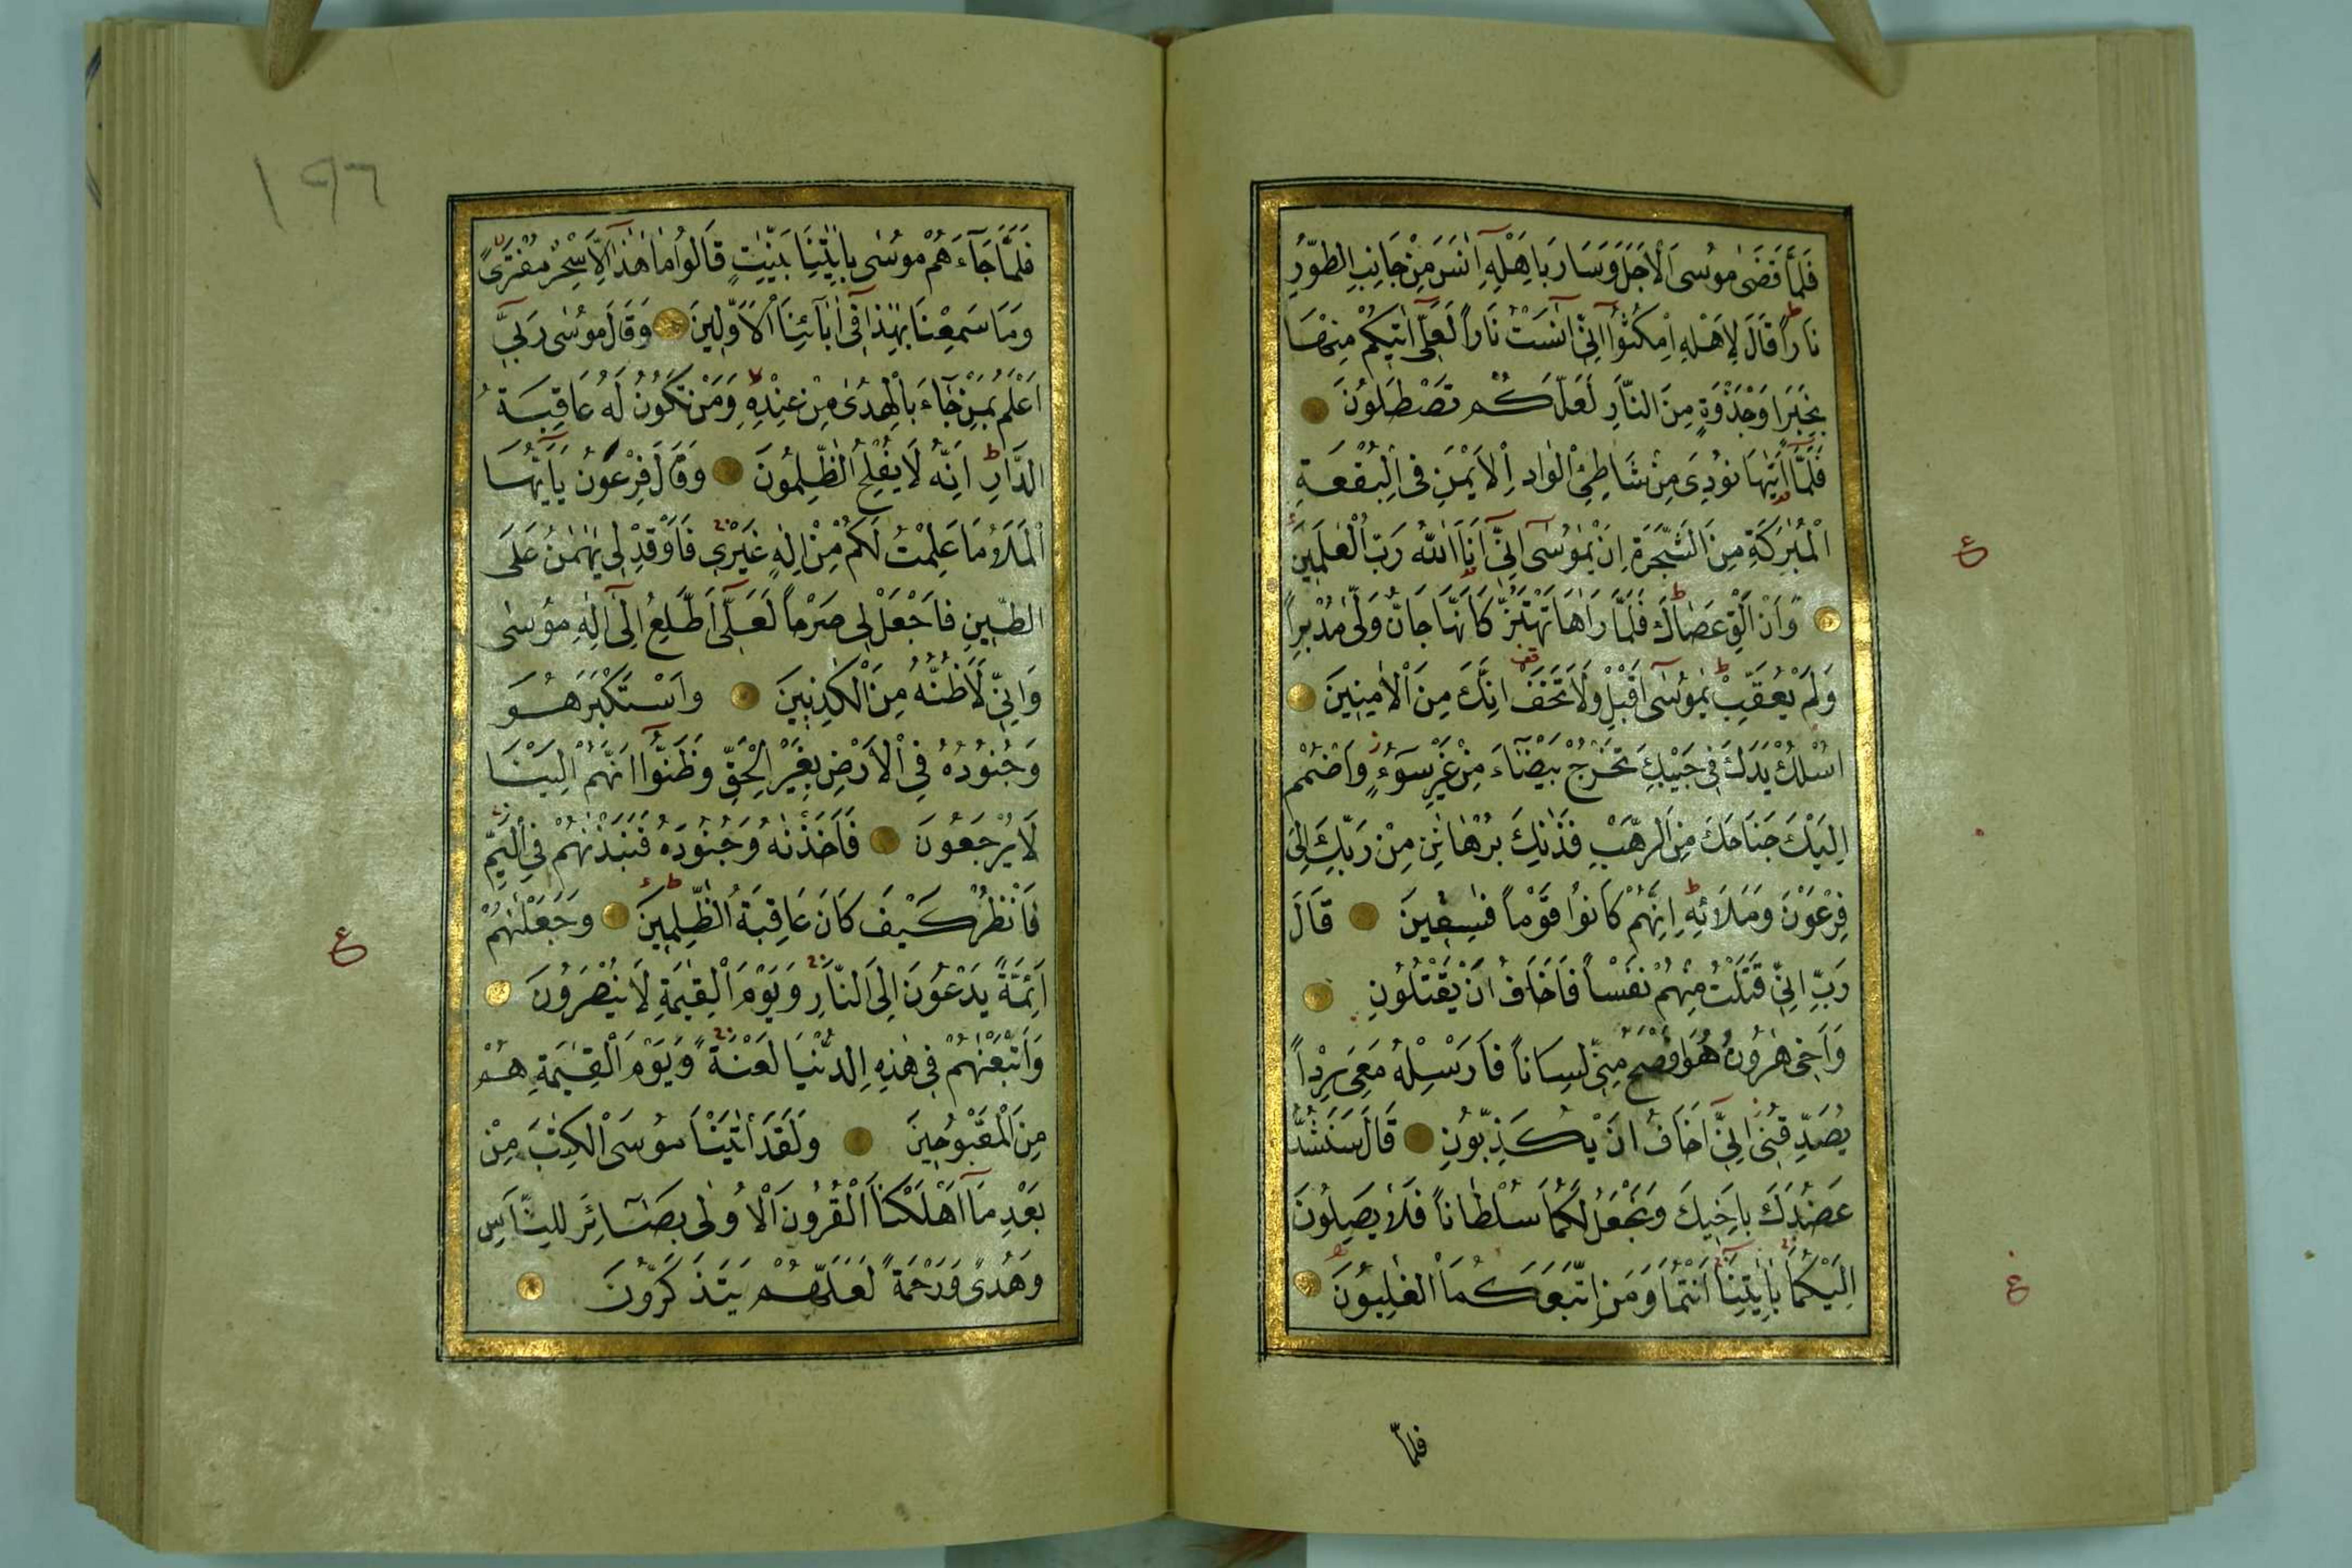 فَلَمَّا قَضٰى مُوسَى الْاَجَلَ وَسَارَ بِاَهْلِهِ اٰنَسَ مِنْ جَانِبِ الطُّورِ
نَاراً قَالَ لِاَهْلِهِ امْكُثُوا اِنِّي اٰنَسْتُ نَاراً لَعَلِّي اٰتِيكُمْ مِنْهَا
بِخَبَرٍ اَوْ جَذْوَةٍ مِنَ النَّارِ لَعَلَّكُمْ تَصْطَلُونَ
فَلَمَّا اَتٰيهَا نُودِيَ مِنْ شَاطِئِ الْوَادِ الْاَيْمَنِ فِي الْبُقْعَةِ
الْمُبٰرَكَةِ مِنَ الشَّجَرَةِ اَنْ يٰمُوسٰى اِنِّي اَنَا اللّٰهُ رَبُّ الْعٰلَمِينَ
وَاَنْ اَلْقِ عَصَاكَ فَلَمَّا رَاٰهَا تَهْتَزُّ كَاَنَّهَا جَانٌّ وَلّٰى مُدْبِراً
وَلَمْ يُعَقِّبْ يٰمُوسٰى اَقْبِلْ وَلَا تَخَفْ اِنَّكَ مِنَ الْاٰمِنِينَ
اُسْلُكْ يَدَكَ فِي جَيْبِكَ تَخْرُجْ بَيْضَاءَ مِنْ غَيْرِ سُوءٍ وَاضْمُمْ
اِلَيْكَ جَنَاحَكَ مِنَ الرَّهْبِ فَذٰنِكَ بُرْهَانٰنِ مِنْ رَبِّكَ اِلٰى
فِرْعَوْنَ وَمَلَائِهِ اِنَّهُمْ كَانُوا قَوْماً فٰسِقِينَ قَالَ
رَبِّ اِنِّي قَتَلْتُ مِنْهُمْ نَفْساً فَاَخَافُ اَنْ يَقْتُلُونِ
وَاَخِي هٰرُونُ هُوَ اَفْصَحُ مِنِّي لِسَاناً فَاَرْسِلْهُ مَعِيَ رِدْاً
يُصَدِّقُنِي اِنِّي اَخَافُ اَنْ يُكَذِّبُونِ قَالَ سَنَشُدُّ
عَضُدَكَ بِاَخِيكَ وَنَجْعَلُ لَكُمَا سُلْطَاناً فَلَا يَصِلُونَ
اِلَيْكُمَا بِاٰيٰتِنَا اَنْتُمَا وَمَنِ اتَّبَعَكُمَا الْغٰلِبُونَ
فلما
ع
ع
١٩٦
فَلَمَّا جَاءَهُمْ مُوسٰى بِاٰيٰتِنَا بَيِّنٰتٍ قَالُوا مَا هٰذَا اِلَّا سِحْرٌ مُفْتَرًى
وَمَا سَمِعْنَا بِهٰذَا فِي اٰبَائِنَا الْاَوَّلِينَ وَقَالَ مُوسٰى رَبِّي
اَعْلَمُ بِمَنْ جَاءَ بِالْهُدٰى مِنْ عِنْدِهِ وَمَنْ تَكُونُ لَهُ عَاقِبَةُ
الدَّارِ اِنَّهُ لَا يُفْلِحُ الظّٰلِمُونَ وَقَالَ فِرْعَوْنُ يَا اَيُّهَا
الْمَلَاُ مَا عَلِمْتُ لَكُمْ مِنْ اِلٰهٍ غَيْرِي فَاَوْقِدْ لِي يٰهٰمٰنُ عَلَى
الطِّينِ فَاجْعَلْ لِي صَرْحاً لَعَلِّي اَطَّلِعُ اِلٰى اِلٰهِ مُوسٰى
وَاِنِّي لَاَظُنُّهُ مِنَ الْكٰذِبِينَ وَاسْتَكْبَرَ هُوَ
وَجُنُودُهُ فِي الْاَرْضِ بِغَيْرِ الْحَقِّ وَظَنُّوا اَنَّهُمْ اِلَيْنَا
لَا يُرْجَعُونَ فَاَخَذْنٰهُ وَجُنُودَهُ فَنَبَذْنٰهُمْ فِي الْيَمِّ
فَانْظُرْ كَيْفَ كَانَ عَاقِبَةُ الظّٰلِمِينَ وَجَعَلْنٰهُمْ
اَئِمَّةً يَدْعُونَ اِلَى النَّارِ وَيَوْمَ الْقِيٰمَةِ لَا يُنْصَرُونَ
وَاَتْبَعْنٰهُمْ فِي هٰذِهِ الدُّنْيَا لَعْنَةً وَيَوْمَ الْقِيٰمَةِ هُمْ
مِنَ الْمَقْبُوحِينَ وَلَقَدْ اٰتَيْنَا مُوسَى الْكِتٰبَ مِنْ
بَعْدِ مَا اَهْلَكْنَا الْقُرُونَ الْاُولٰى بَصَائِرَ لِلنَّاسِ
وَهُدًى وَرَحْمَةً لَعَلَّهُمْ يَتَذَكَّرُونَ
ع